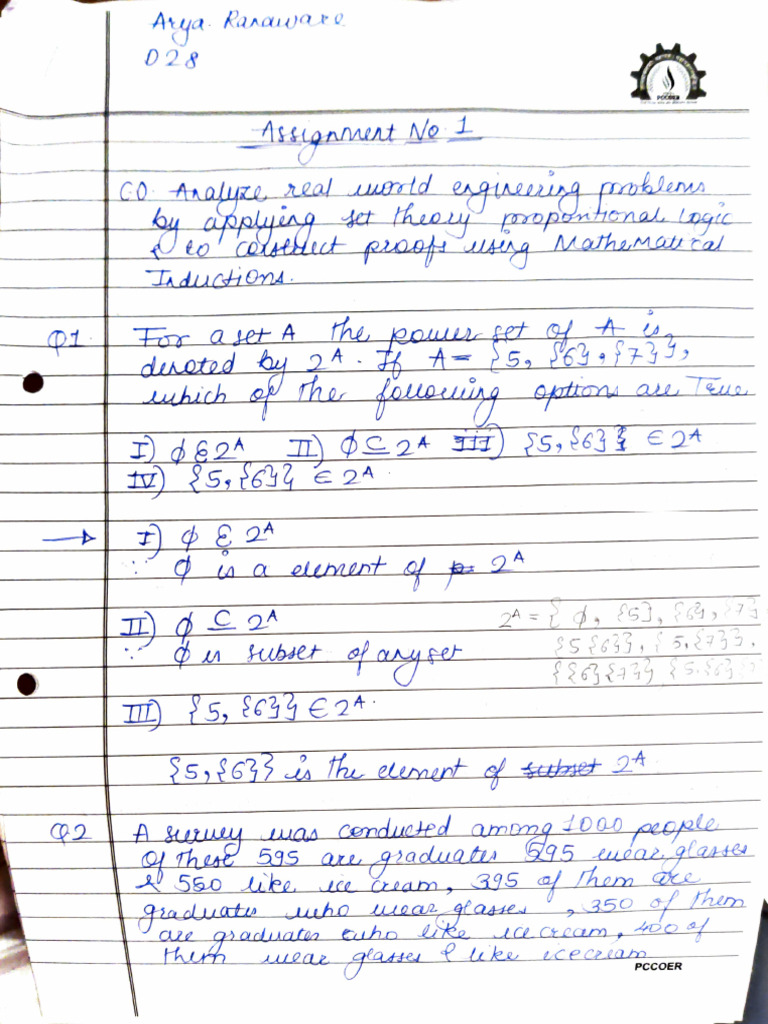 Arya Ranaware
D28
PCCOER
Assignment No 1
CO. Analyze real world engineering problems
by applying set theory propontional Logic
& to construct proofs using Mathematical
Inductions.
Q1 For a set A the power set of A is
denoted by 2^A. If A = {5, {6}, {7}},
which of the following options are True
I) ϕ ∈ 2^A II) ϕ ⊆ 2^A III) {5, {6}} ∈ 2^A
IV) {5, {6}} ∈ 2^A.
→ I) ϕ ∈ 2^A
∵ ϕ is a element of 2^A
II) ϕ ⊆ 2^A
2^A = { ϕ, {5}, {6}, {7}
∵ ϕ is subset of any set
{5{6}}, {5,{7}},
{{6}{7}} {5,{6}
III) {5, {6}} ∈ 2^A.
{5, {6}} is the element of subset 2^A
Q2 A survey was conducted among 1000 people
Of these 595 are graduates 595 wear glasses
& 550 like ice cream, 395 of them are
graduates who wear glasses, 350 of them
are graduates who like ice cream, 400 of
them wear glasses & like icecream
PCCOER